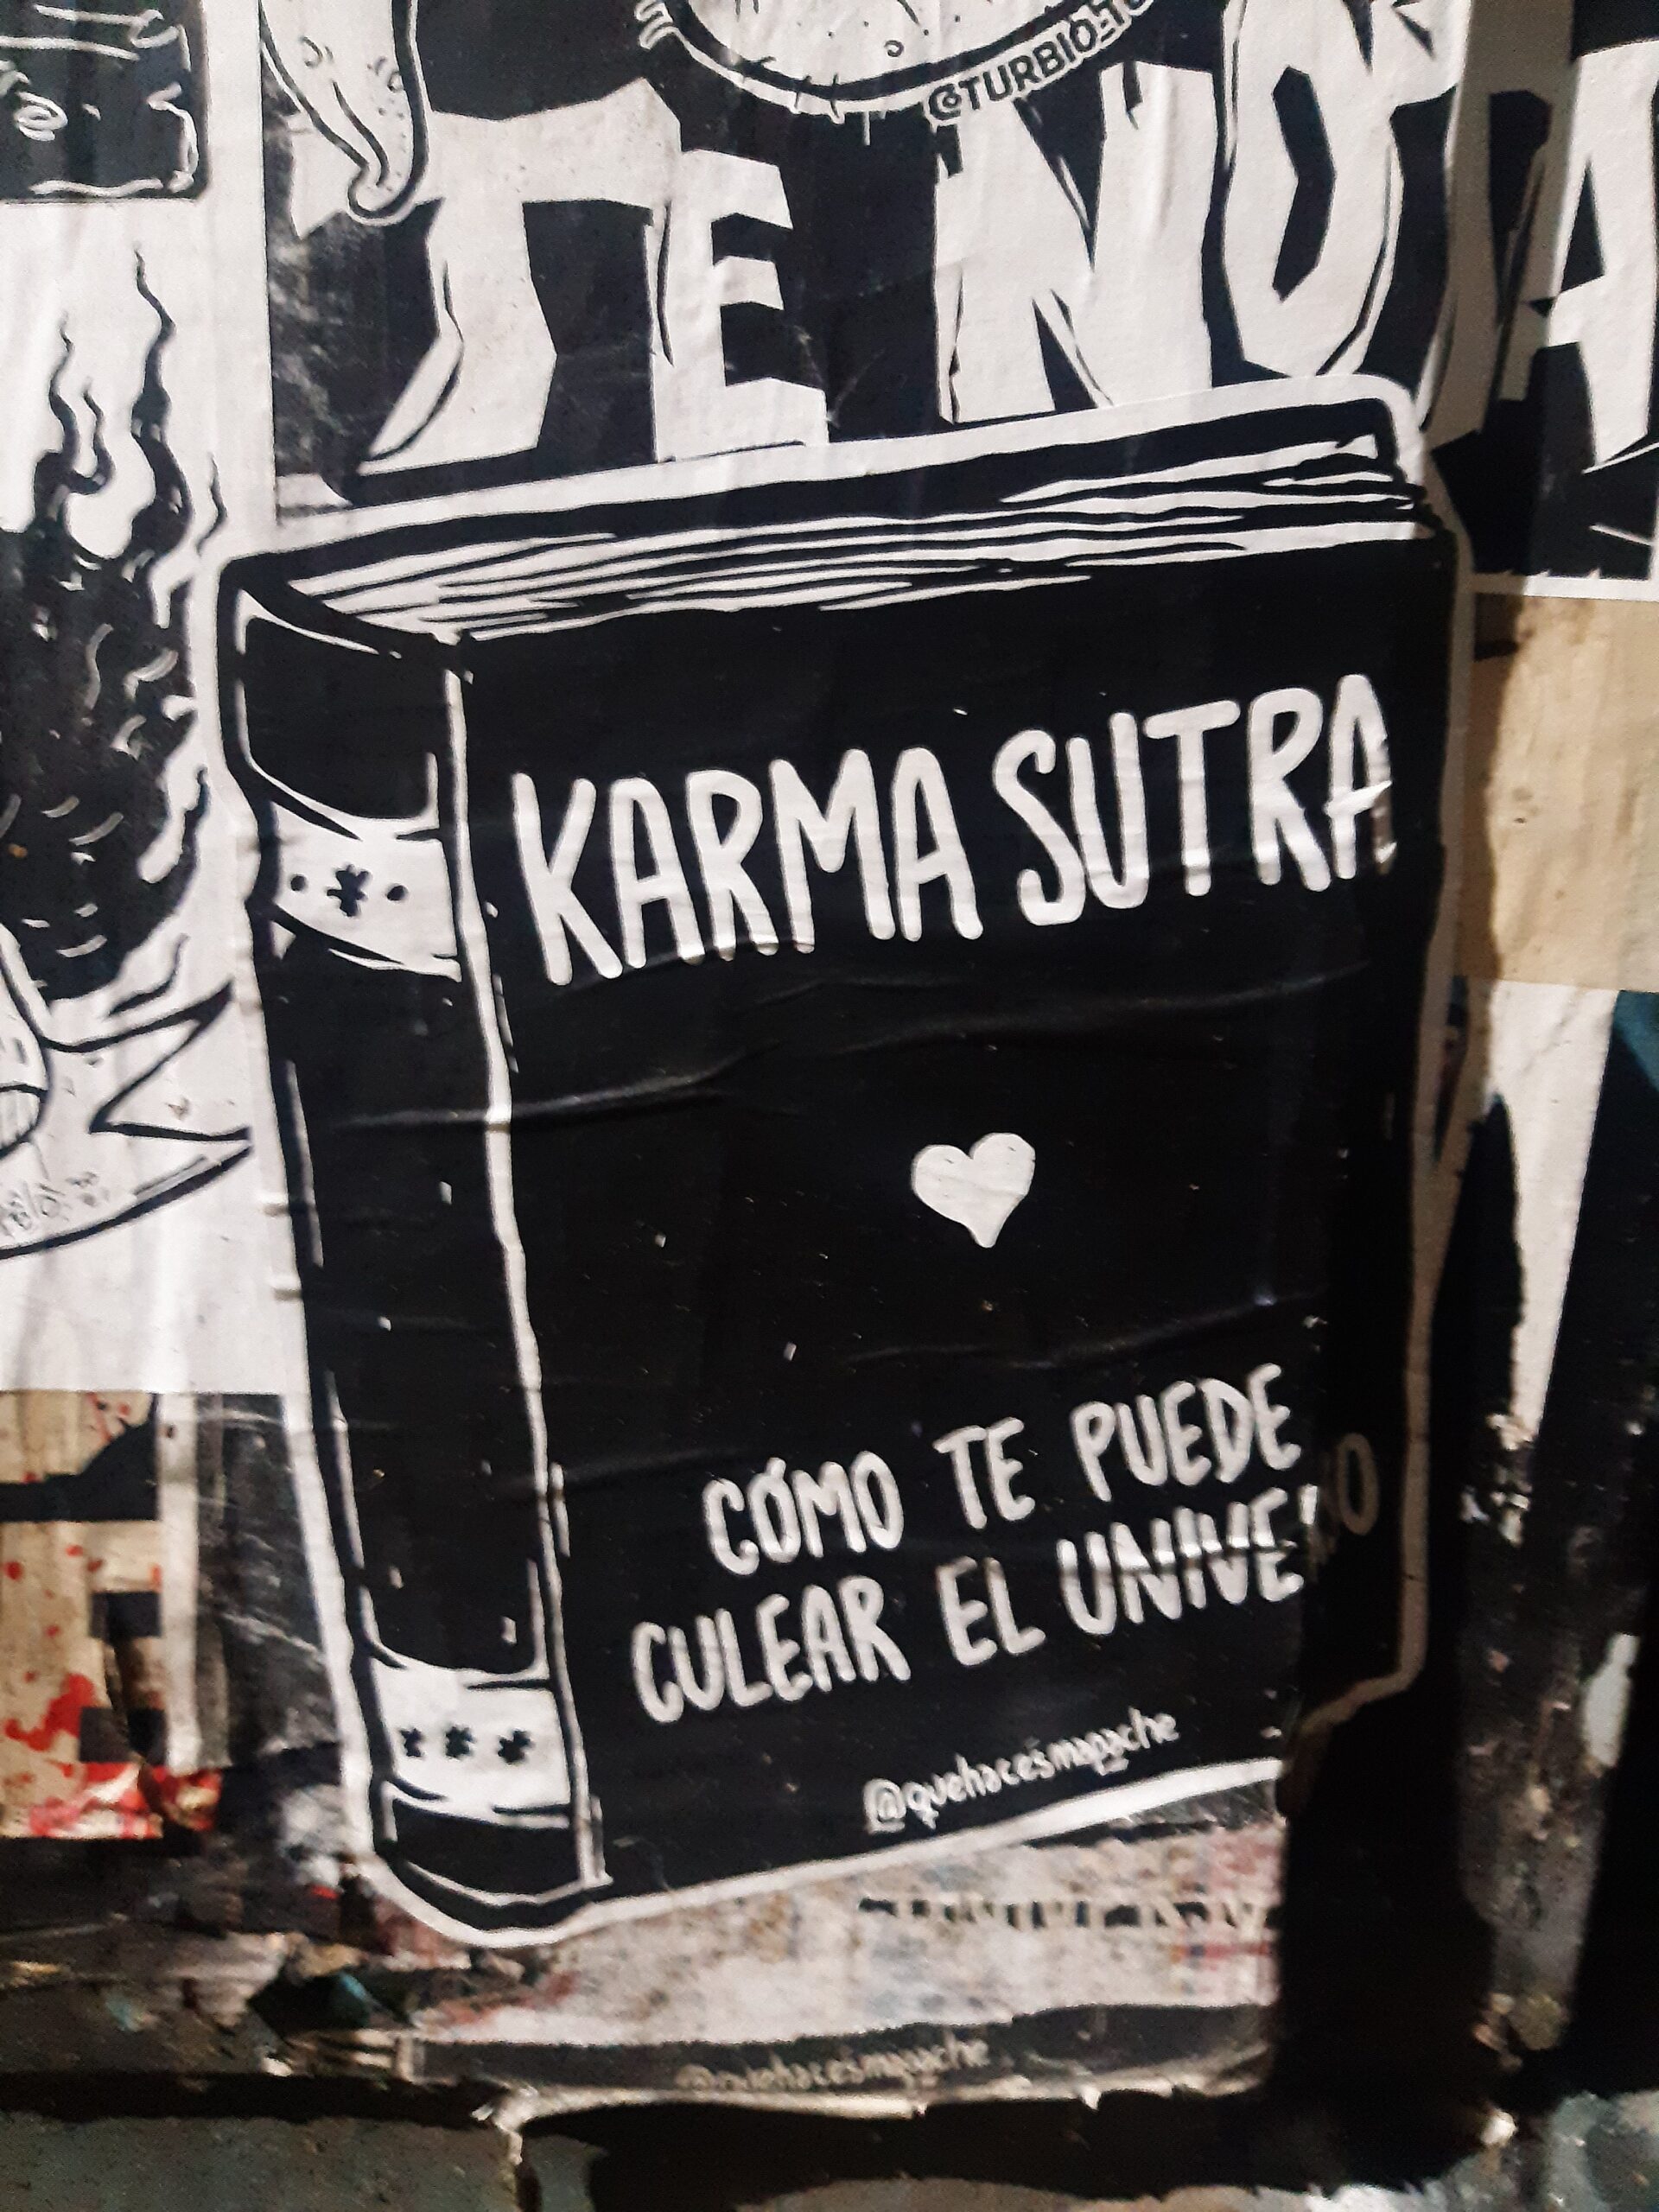 @TURBIO
TE NO
KARMA SUTRA
CÓMO TE PUEDE
CULEAR EL UNIVERSO
@quehacesmapache
@quehacesmapache